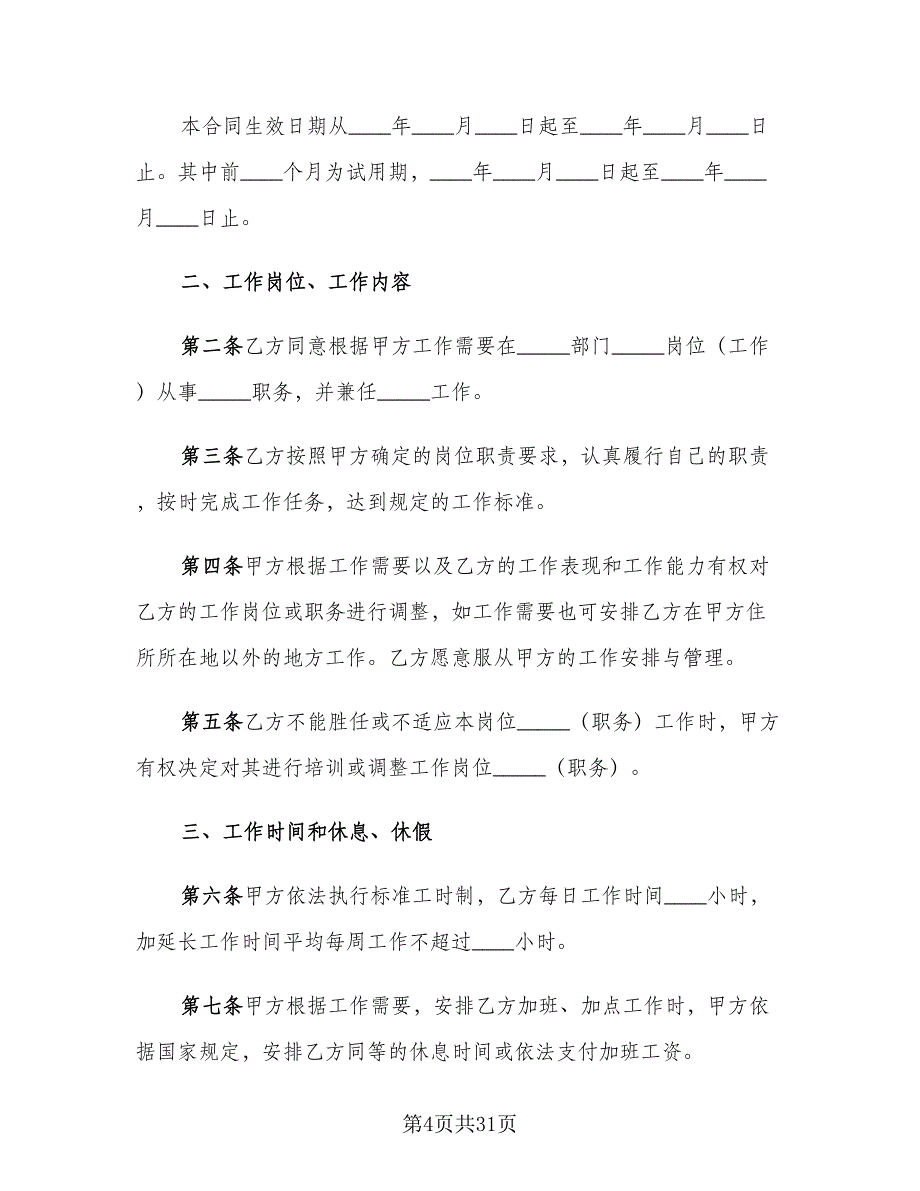 本合同生效日期从____年____月____日起至____年____月____日
止。其中前____个月为试用期，____年____月____日起至____年____
月____日止。
二、工作岗位、工作内容
第二条乙方同意根据甲方工作需要在_____部门_____岗位（工作
）从事_____职务，并兼任_____工作。
第三条乙方按照甲方确定的岗位职责要求，认真履行自己的职责
，按时完成工作任务，达到规定的工作标准。
第四条甲方根据工作需要以及乙方的工作表现和工作能力有权对
乙方的工作岗位或职务进行调整，如工作需要也可安排乙方在甲方住
所所在地以外的地方工作。乙方愿意服从甲方的工作安排与管理。
第五条乙方不能胜任或不适应本岗位_____（职务）工作时，甲方
有权决定对其进行培训或调整工作岗位_____（职务）。
三、工作时间和休息、休假
第六条甲方依法执行标准工时制，乙方每日工作时间____小时，
加延长工作时间平均每周工作不超过____小时。
第七条甲方根据工作需要，安排乙方加班、加点工作时，甲方依
据国家规定，安排乙方同等的休息时间或依法支付加班工资。
第4页共31页